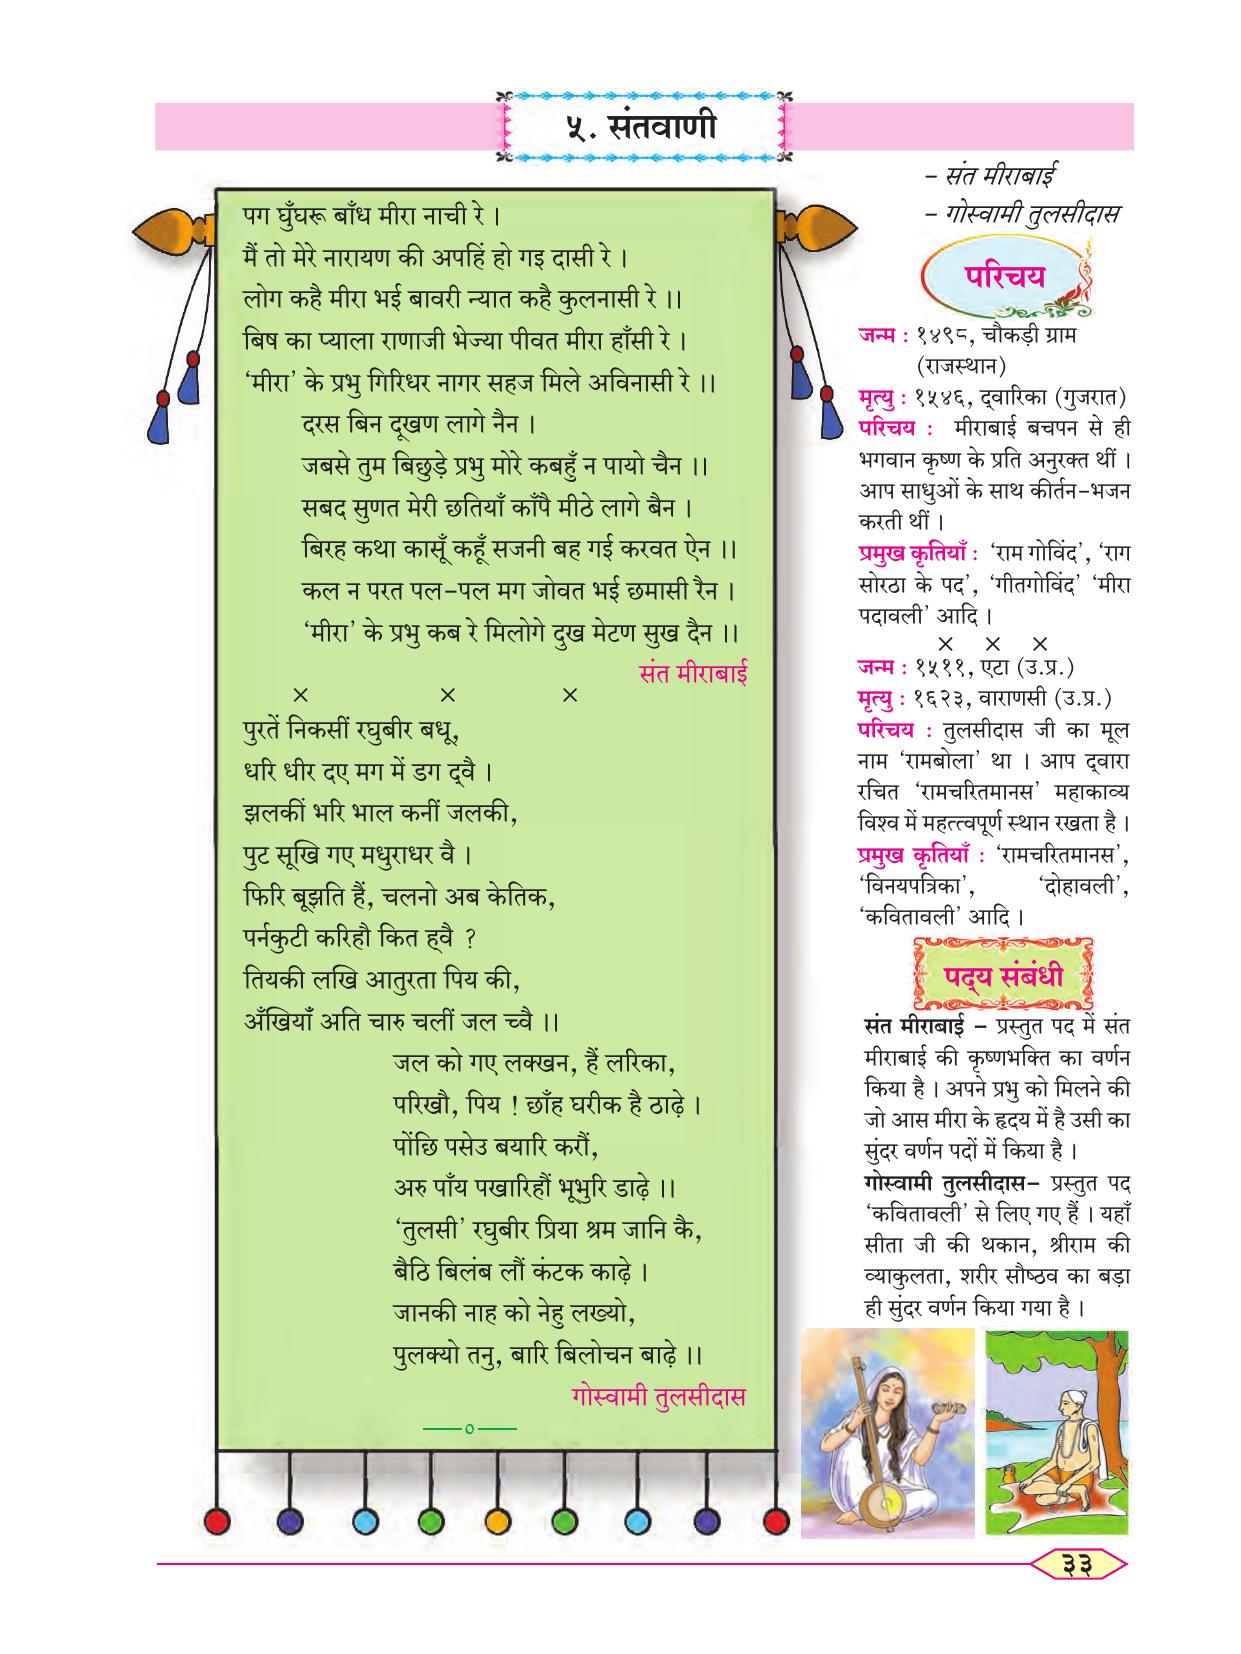 ५. संतवाणी
– संत मीराबाई
– गोस्वामी तुलसीदास
पग घुँघरू बाँध मीरा नाची रे ।
मैं तो मेरे नारायण की अपहिं हो गइ दासी रे ।
लोग कहै मीरा भई बावरी न्यात कहै कुलनासी रे ।।
बिष का प्याला राणाजी भेज्या पीवत मीरा हाँसी रे ।
‘मीरा’ के प्रभु गिरिधर नागर सहज मिले अविनासी रे ।।
दरस बिन दूखण लागे नैन ।
जबसे तुम बिछुड़े प्रभु मोरे कबहुँ न पायो चैन ।।
सबद सुणत मेरी छतियाँ काँपै मीठे लागे बैन ।
बिरह कथा कासूँ कहूँ सजनी बह गई करवत ऐन ।।
कल न परत पल-पल मग जोवत भई छमासी रैन ।
‘मीरा’ के प्रभु कब रे मिलोगे दुख मेटण सुख दैन ।।
संत मीराबाई
× × ×
पुरतें निकसीं रघुबीर बधू,
धरि धीर दए मग में डग द्‌वै ।
झलकीं भरि भाल कनीं जलकी,
पुट सूखि गए मधुराधर वै ।
फिरि बूझति हैं, चलनो अब केतिक,
पर्नकुटी करिहौ कित ह्‌वै ?
तियकी लखि आतुरता पिय की,
अँखियाँ अति चारु चलीं जल च्वै ।।
जल को गए लक्खन, हैं लरिका,
परिखौ, पिय ! छाँह घरीक है ठाढ़े ।
पोंछि पसेउ बयारि करौं,
अरु पाँय पखारिहौं भूभुरि डाढ़े ।।
‘तुलसी’ रघुबीर प्रिया श्रम जानि कै,
बैठि बिलंब लौं कंटक काढ़े ।
जानकी नाह को नेहु लख्यो,
पुलक्यो तनु, बारि बिलोचन बाढ़े ।।
गोस्वामी तुलसीदास
परिचय
जन्म : १४९८, चौकड़ी ग्राम
(राजस्थान)
मृत्यु : १५४६, द्‌वारिका (गुजरात)
परिचय : मीराबाई बचपन से ही
भगवान कृष्ण के प्रति अनुरक्त थीं ।
आप साधुओं के साथ कीर्तन-भजन
करती थीं ।
प्रमुख कृतियाँ : ‘राम गोविंद’, ‘राग
सोरठा के पद’, ‘गीतगोविंद’ ‘मीरा
पदावली’ आदि ।
× × ×
जन्म : १५११, एटा (उ.प्र.)
मृत्यु : १६२३, वाराणसी (उ.प्र.)
परिचय : तुलसीदास जी का मूल
नाम ‘रामबोला’ था । आप द्‌वारा
रचित ‘रामचरितमानस’ महाकाव्य
विश्व में महत्त्वपूर्ण स्थान रखता है ।
प्रमुख कृतियाँ : ‘रामचरितमानस’,
‘विनयपत्रिका’, ‘दोहावली’,
‘कवितावली’ आदि ।
पद्‌य संबंधी
संत मीराबाई – प्रस्तुत पद में संत
मीराबाई की कृष्णभक्ति का वर्णन
किया है । अपने प्रभु को मिलने की
जो आस मीरा के हृदय में है उसी का
सुंदर वर्णन पदों में किया है ।
गोस्वामी तुलसीदास– प्रस्तुत पद
‘कवितावली’ से लिए गए हैं । यहाँ
सीता जी की थकान, श्रीराम की
व्याकुलता, शरीर सौष्ठव का बड़ा
ही सुंदर वर्णन किया गया है ।
३३